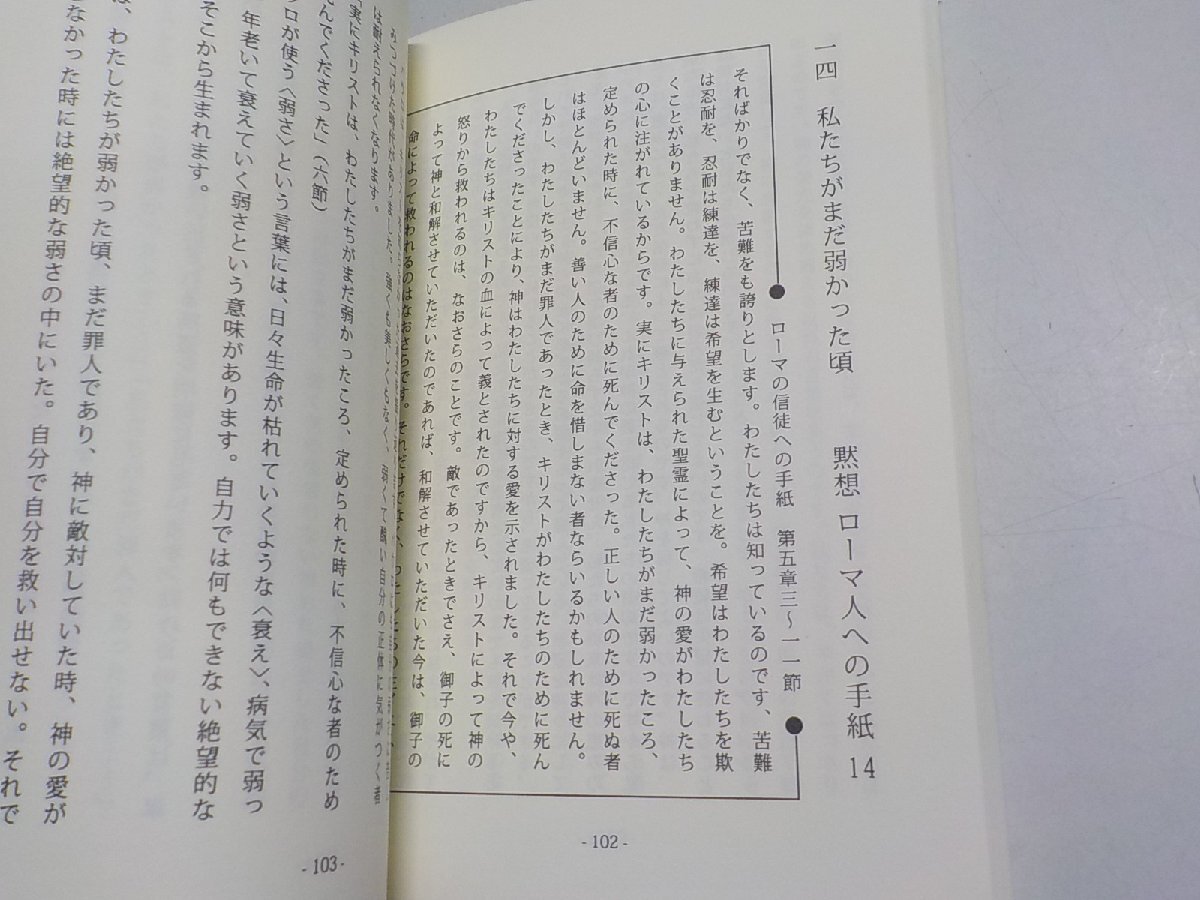 一四　私たちがまだ弱かった頃　　黙想 ローマ人への手紙 14
ローマの信徒への手紙　第五章三～一一節
そればかりでなく、苦難をも誇りとします。わたしたちは知っているのです、苦難
は忍耐を、忍耐は練達を、練達は希望を生むということを。希望はわたしたちを欺
くことがありません。わたしたちに与えられた聖霊によって、神の愛がわたしたち
の心に注がれているからです。実にキリストは、わたしたちがまだ弱かったころ、
定められた時に、不信心な者のために死んでくださった。正しい人のために死ぬ者
はほとんどいません。善い人のために命を惜しまない者ならいるかもしれません。
しかし、わたしたちがまだ罪人であったとき、キリストがわたしたちのために死ん
でくださったことにより、神はわたしたちに対する愛を示されました。それで今や、
わたしたちはキリストの血によって義とされたのですから、キリストによって神の
怒りから救われるのは、なおさらのことです。敵であったときでさえ、御子の死に
よって神と和解させていただいたのであれば、和解させていただいた今は、御子の
命によって救われるのはなおさらです。それだけでなく、
- 102 -
弱くて醜い自分の正体に気がつく者
は耐えられなくなります。
「実にキリストは、わたしたちがまだ弱かったころ、定められた時に、不信心な者のため
んでくださった」（六節）
ロが使う〈弱さ〉という言葉には、日々生命が枯れていくような〈衰え〉、病気で弱っ
年老いて衰えていく弱さという意味があります。自力では何もできない絶望的な
そこから生まれます。
わたしたちが弱かった頃、まだ罪人であり、神に敵対していた時、神の愛が
なかった時には絶望的な弱さの中にいた。自分で自分を救い出せない。それで
- 103 -